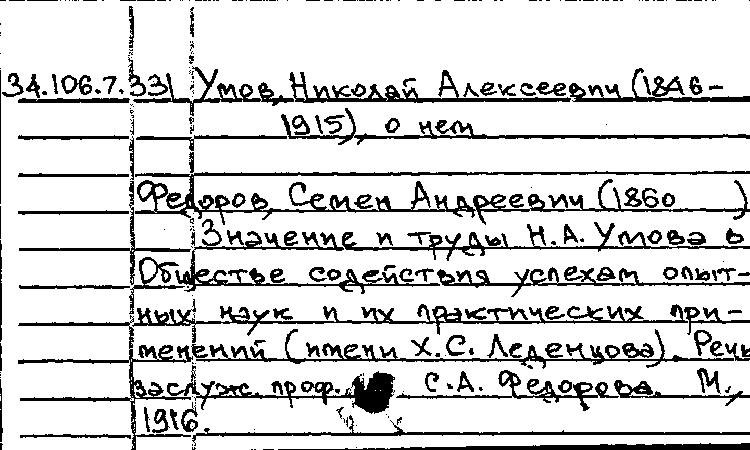 34.106.7.331 Умов, Николай Алексеевич (1846-
1915), о нем
Федоров, Семен Андреевич (1860 )
Значение и труды Н.А. Умова в
Обществе содействия успехам опыт-
ных наук и их практических при-
менений (имени Х.С. Леденцова). Речь
заслуж. проф. С.А. Федорова. М.,
1916.